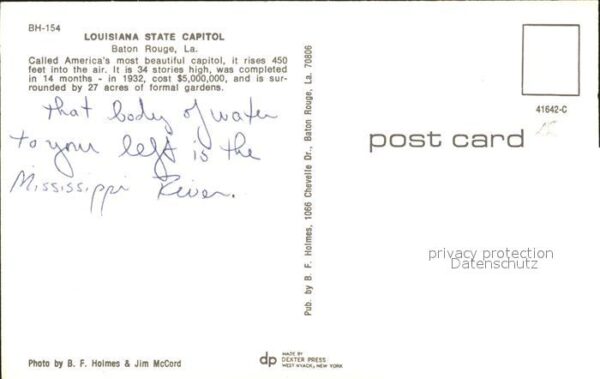 BH-154
LOUISIANA STATE CAPITOL
Baton Rouge, La.
Called America's most beautiful capitol, it rises 450
feet into the air. It is 34 stories high, was completed
in 14 months - in 1932, cost $5,000,000, and is sur-
rounded by 27 acres of formal gardens.
that body of water
to your left is the
Mississippi River.
Pub. by B. F. Holmes, 1066 Chevelle Dr., Baton Rouge, La. 70806
41642-C
post card
privacy protection
Datenschutz
Photo by B. F. Holmes & Jim McCord
dp
MADE BY
DEXTER PRESS
WEST NYACK, NEW YORK